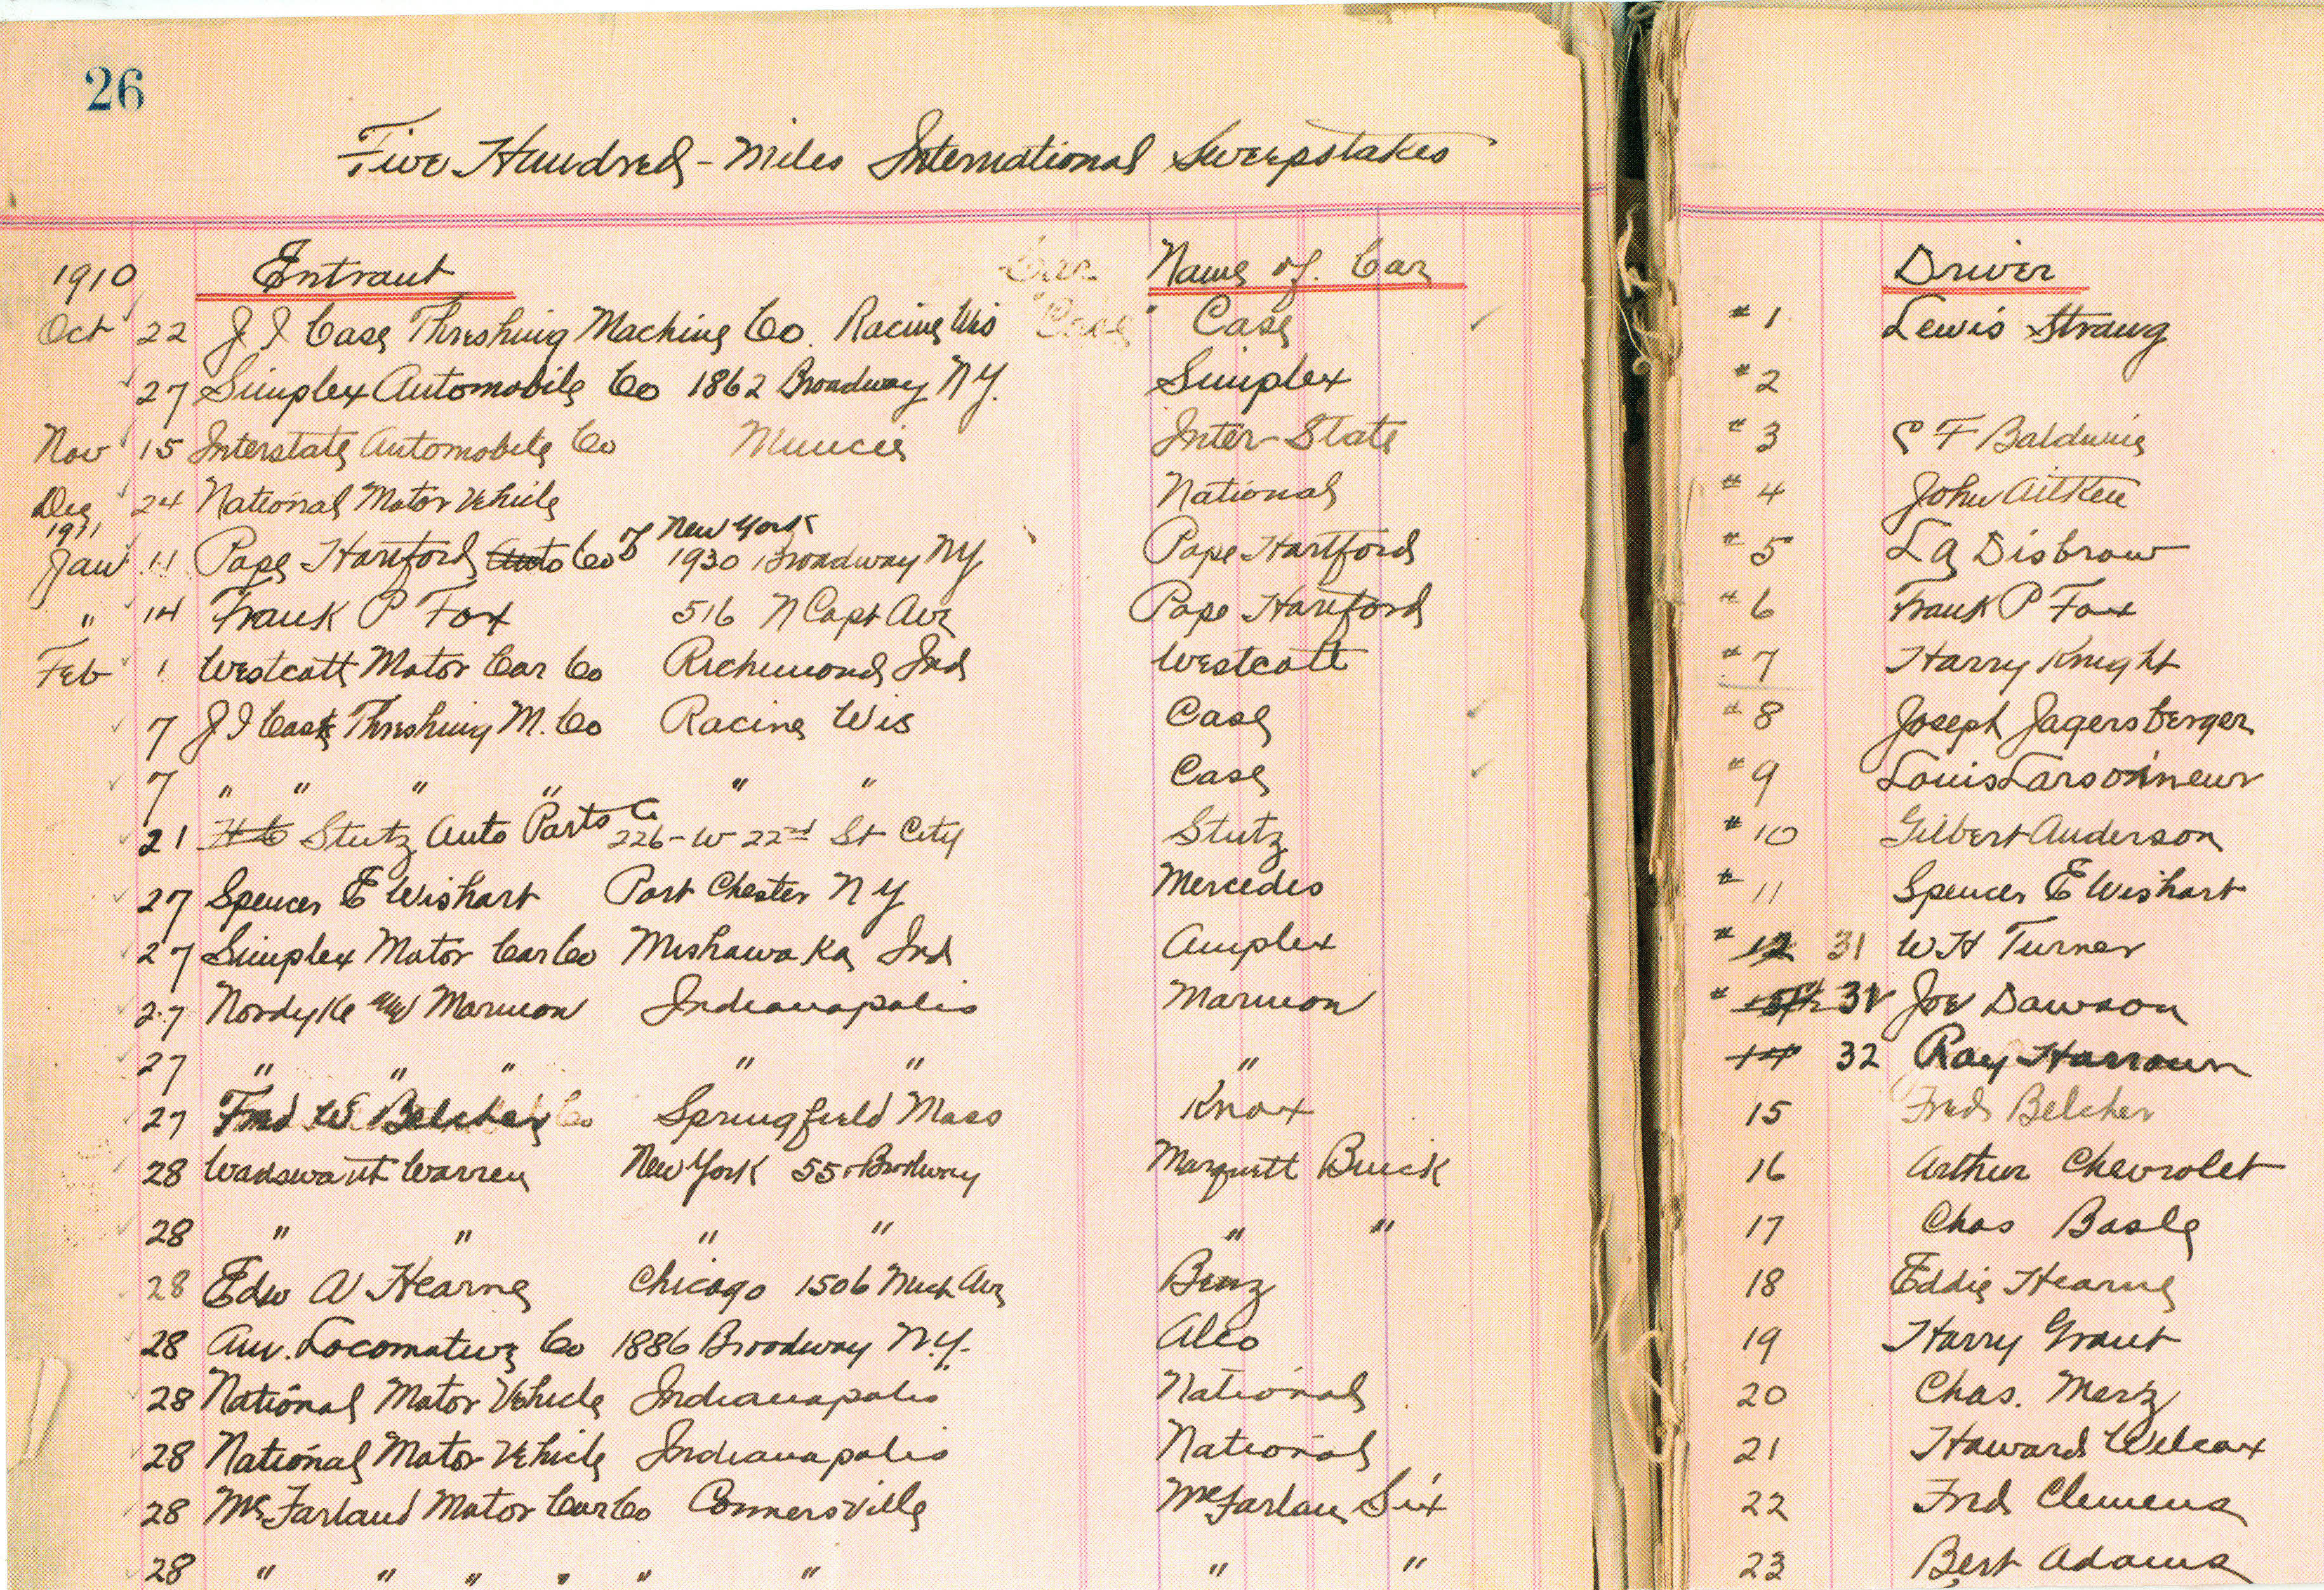 26
Five Hundred - Miles International Sweepstakes
1910 Entrant Car Name of Car Driver
Oct 22 J I Case Threshing Machine Co. Racine Wis "Case" Case ✓ # 1 Lewis Strang
27 Simplex Automobile Co 1862 Broadway N Y. Simplex # 2
Nov 15 Interstate Automobile Co Muncie Inter-State # 3 C F Baldwin
Dec 24 National Motor Vehicle National # 4 John Aitken
1911
Jan 11 Pope Hartford Auto Co of New York 1930 Broadway NY Pope Hartford # 5 L A Disbrow
" 14 Frank P Fox 516 N Capt Ave Pope Hartford # 6 Frank P Fox
Feb 1 Westcott Motor Car Co Richmond Ind Westcott # 7 Harry Knight
7 J I Case Threshing M. Co Racine Wis Case ✓ # 8 Joseph Jagersberger
7 " " " " " " Case ✓ # 9 Louis Larsonneur
21 H C Stutz Auto Parts Co 226 - W 22nd St City Stutz # 10 Gilbert Anderson
27 Spencer E Wishart Port Chester N Y Mercedes # 11 Spencer E Wishart
27 Simplex Motor Car Co Mishawaka Ind Amplex # 12 31 W H Turner
27 Nordyke and Marmon Indianapolis Marmon # 31 Joe Dawson
27 " " " " " " 14 32 Ray Harroun
27 Fred W Belcher Co Springfield Mass Knox 15 Fred Belcher
28 Wadswarth Warren New York 55 Brodway Marquett Buick 16 Arthur Chevrolet
28 " " " " " " 17 Chas Basle
28 Edw A Hearne Chicago 1506 Mich Ave Benz 18 Eddie Hearne
28 Am. Locomotive Co 1886 Broadway N.Y. Alco 19 Harry Grant
28 National Motor Vehicle Indianapolis National 20 Chas. Merz
28 National Motor Vehicle Indianapolis National 21 Howard Wilcox
28 McFarland Motor Car Co Connersville McFarlan Six 22 Fred Clemens
28 " " " " " " " " 23 Bert Adams